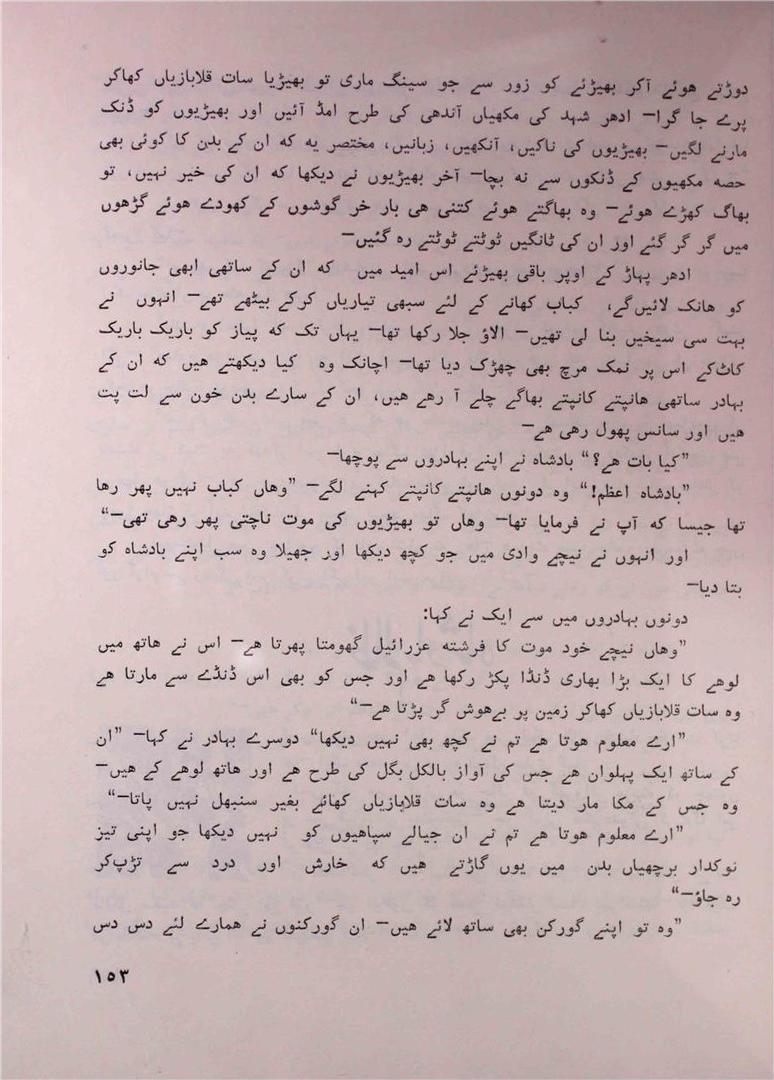 دوڑتے هوئے آکر بھیڑئے کو زور سے جو سینگ ماری تو بھیڑیا سات قلابازیاں کھاکر
پرے جا گرا— ادهر شهد کی مکھیاں آندهی کی طرح امڈ آئیں اور بھیڑیوں کو ڈنک
مارنے لگیں— بھیڑیوں کی ناکیں، آنکھیں، زبانیں، مختصر یه که ان کے بدن کا کوئی بھی
حصه مکھیوں کے ڈنکوں سے نه بچا— آخر بھیڑیوں نے دیکھا که ان کی خیر نہیں، تو
بھاگ کھڑے هوئے— وه بھاگتے هوئے کتنی هی بار خر گوشوں کے کھودے هوئے گڑهوں
میں گر گر گئے اور ان کی ٹانگیں ٹوٹتے ٹوٹتے ره گئیں—
ادهر پہاڑ کے اوپر باقی بھیڑئے اس امید میں که ان کے ساتھی ابھی جانوروں
کو هانک لائیں‌گے، کباب کھانے کے لئے سبھی تیاریاں کرکے بیٹھے تھے— انہوں نے
بہت سی سیخیں بنا لی تھیں— الاؤ جلا رکھا تھا— یہاں تک که پیاز کو باریک باریک
کاٹ‌کے اس پر نمک مرچ بھی چھڑک دیا تھا— اچانک وه کیا دیکھتے هیں که ان کے
بہادر ساتھی هانپتے کانپتے بھاگے چلے آ رهے هیں، ان کے سارے بدن خون سے لت پت
هیں اور سانس پھول رهی هے—
”کیا بات هے؟“ بادشاه نے اپنے بہادروں سے پوچھا—
”بادشاه اعظم!“ وه دونوں هانپتے کانپتے کہنے لگے— ”وهاں کباب نہیں پھر رها
تھا جیسا که آپ نے فرمایا تھا— وهاں تو بھیڑیوں کی موت ناچتی پھر رهی تھی—“
اور انہوں نے نیچے وادی میں جو کچھ دیکھا اور جھیلا وه سب اپنے بادشاه کو
بتا دیا—
دونوں بہادروں میں سے ایک نے کہا:
”وهاں نیچے خود موت کا فرشته عزرائیل گھومتا پھرتا هے— اس نے هاتھ میں
لوهے کا ایک بڑا بھاری ڈنڈا پکڑ رکھا هے اور جس کو بھی اس ڈنڈے سے مارتا هے
وه سات قلابازیاں کھاکر زمین پر بے‌هوش گر پڑتا هے—“
”ارے معلوم هوتا هے تم نے کچھ بھی نہیں دیکھا“ دوسرے بہادر نے کہا— ”ان
کے ساتھ ایک پہلوان هے جس کی آواز بالکل بگل کی طرح هے اور هاتھ لوهے کے هیں—
وه جس کے مکا مار دیتا هے وه سات قلابازیاں کھائے بغیر سنبھل نہیں پاتا—“
”ارے معلوم هوتا هے تم نے ان جیالے سپاهیوں کو نہیں دیکھا جو اپنی تیز
نوکدار برچھیاں بدن میں یوں گاڑتے هیں که خارش اور درد سے تڑپ‌کر
ره جاؤ—“
”وه تو اپنے گورکن بھی ساتھ لائے هیں— ان گورکنوں نے همارے لئے دس دس
۱۵۳